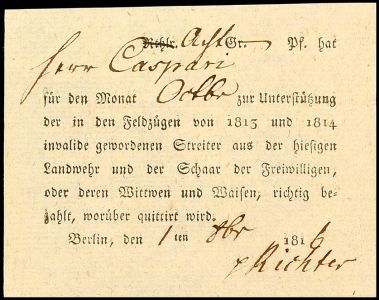 Rthlr. Acht Gr. — Pf. hat
Herr Caspari
für den Monat Octbr zur Unterstützung
der in den Feldzügen von 1813 und 1814
invalide gewordenen Streiter aus der hiesigen
Landwehr und der Schaar der Freiwilligen,
oder deren Wittwen und Waisen, richtig be-
zahlt, worüber quittirt wird.
Berlin, den 1 ten 8br 1816
Richter